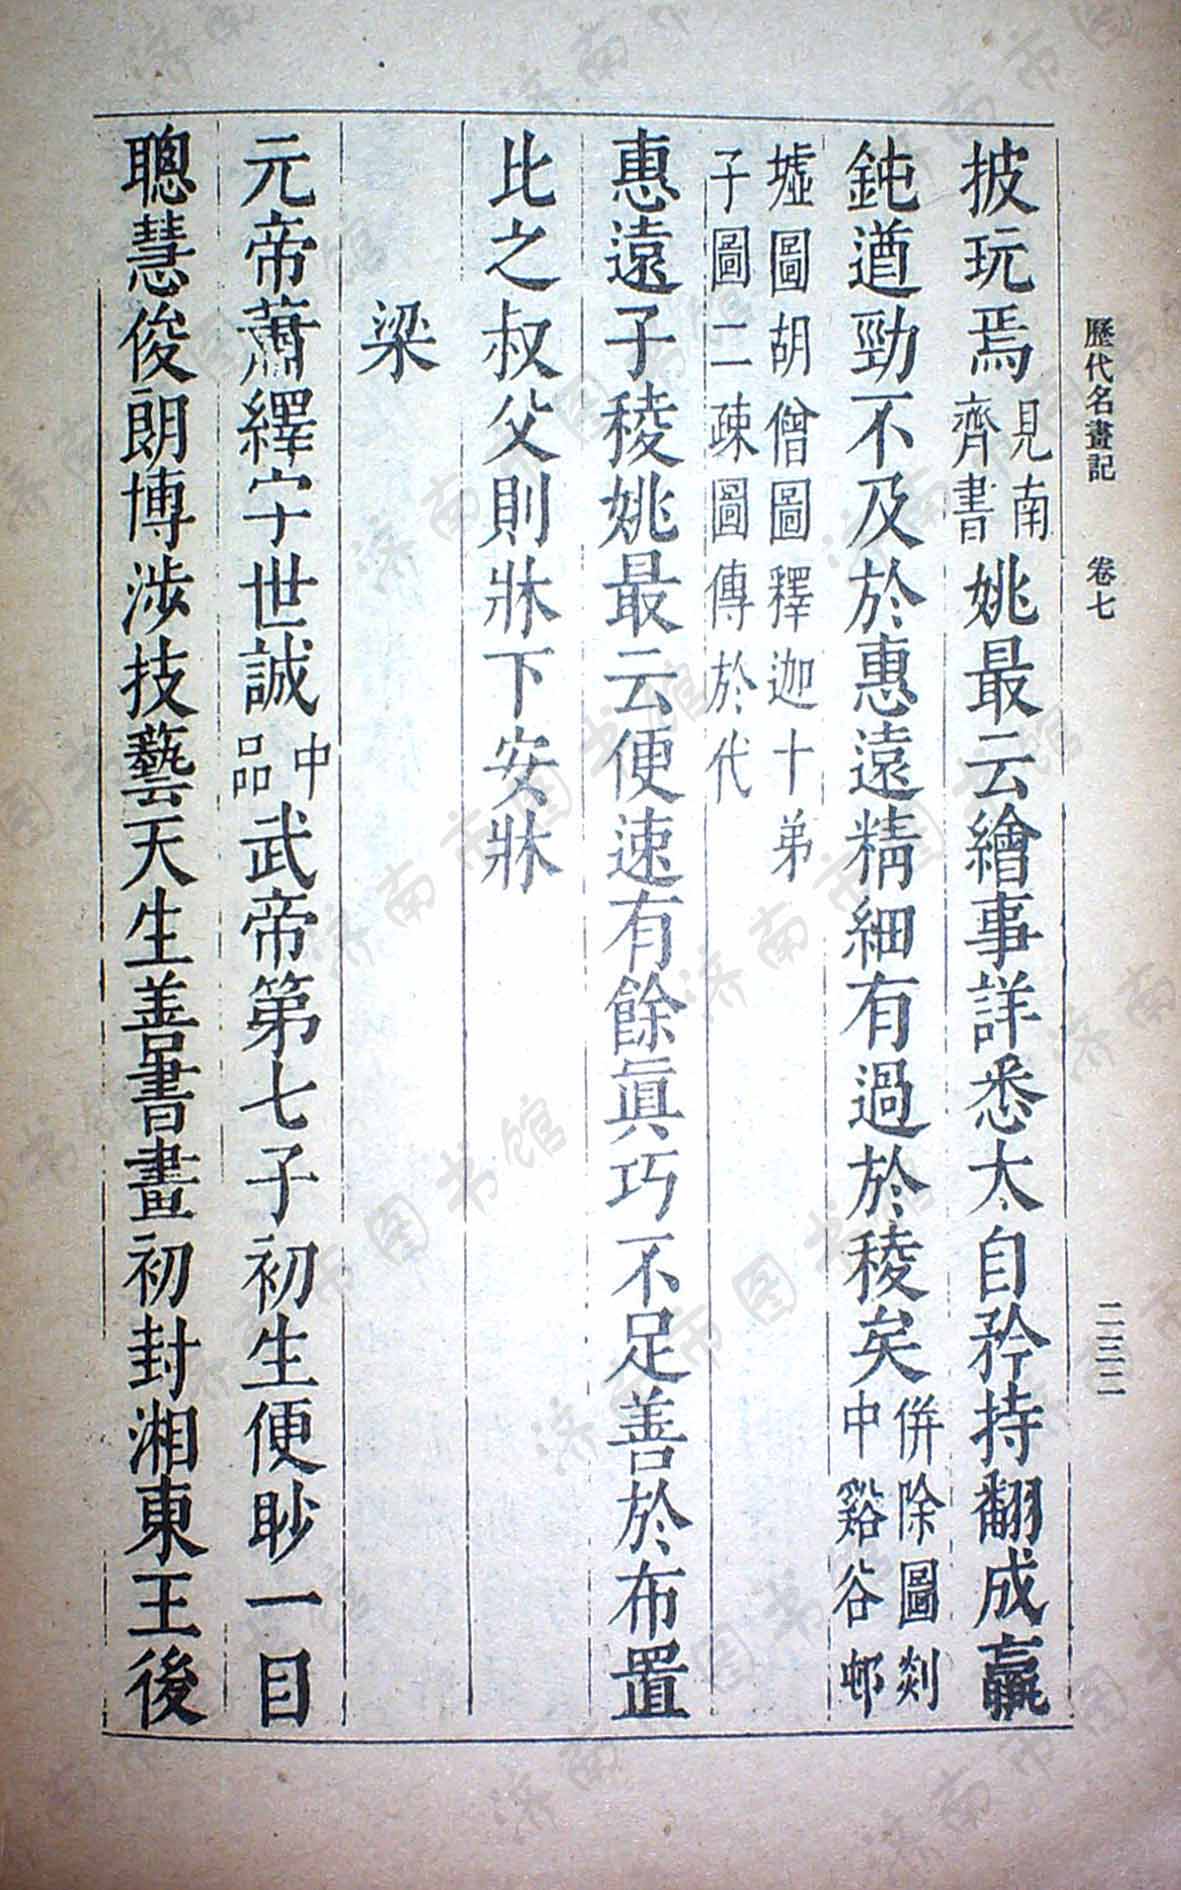 歷代名畫記　卷七　二三二
披玩焉見南齊書姚最云繪事詳悉太自矜持翻成羸
鈍遒勁不及於惠遠精細有過於稜矣併除圖剡中谿谷邨
墟圖胡僧圖釋迦十弟子圖二疎圖傳於代
惠遠子稜姚最云便速有餘眞巧不足善於布置
比之叔父則牀下安牀
梁
元帝蕭繹字世誠中品武帝第七子初生便眇一目
聰慧俊朗博涉技藝天生善書畫初封湘東王後
济南市图书馆